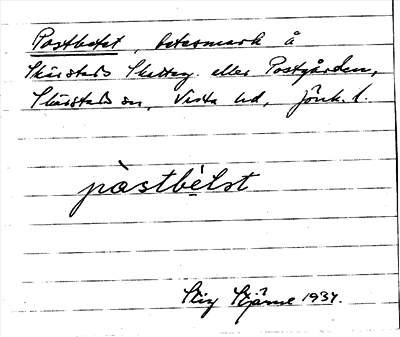 Postbetet, betesmark å
Skärstads Skatteg. eller Postgården,
Skärstads sn, Vista hd, Jönk. l.
Stig Stjärne 1934.